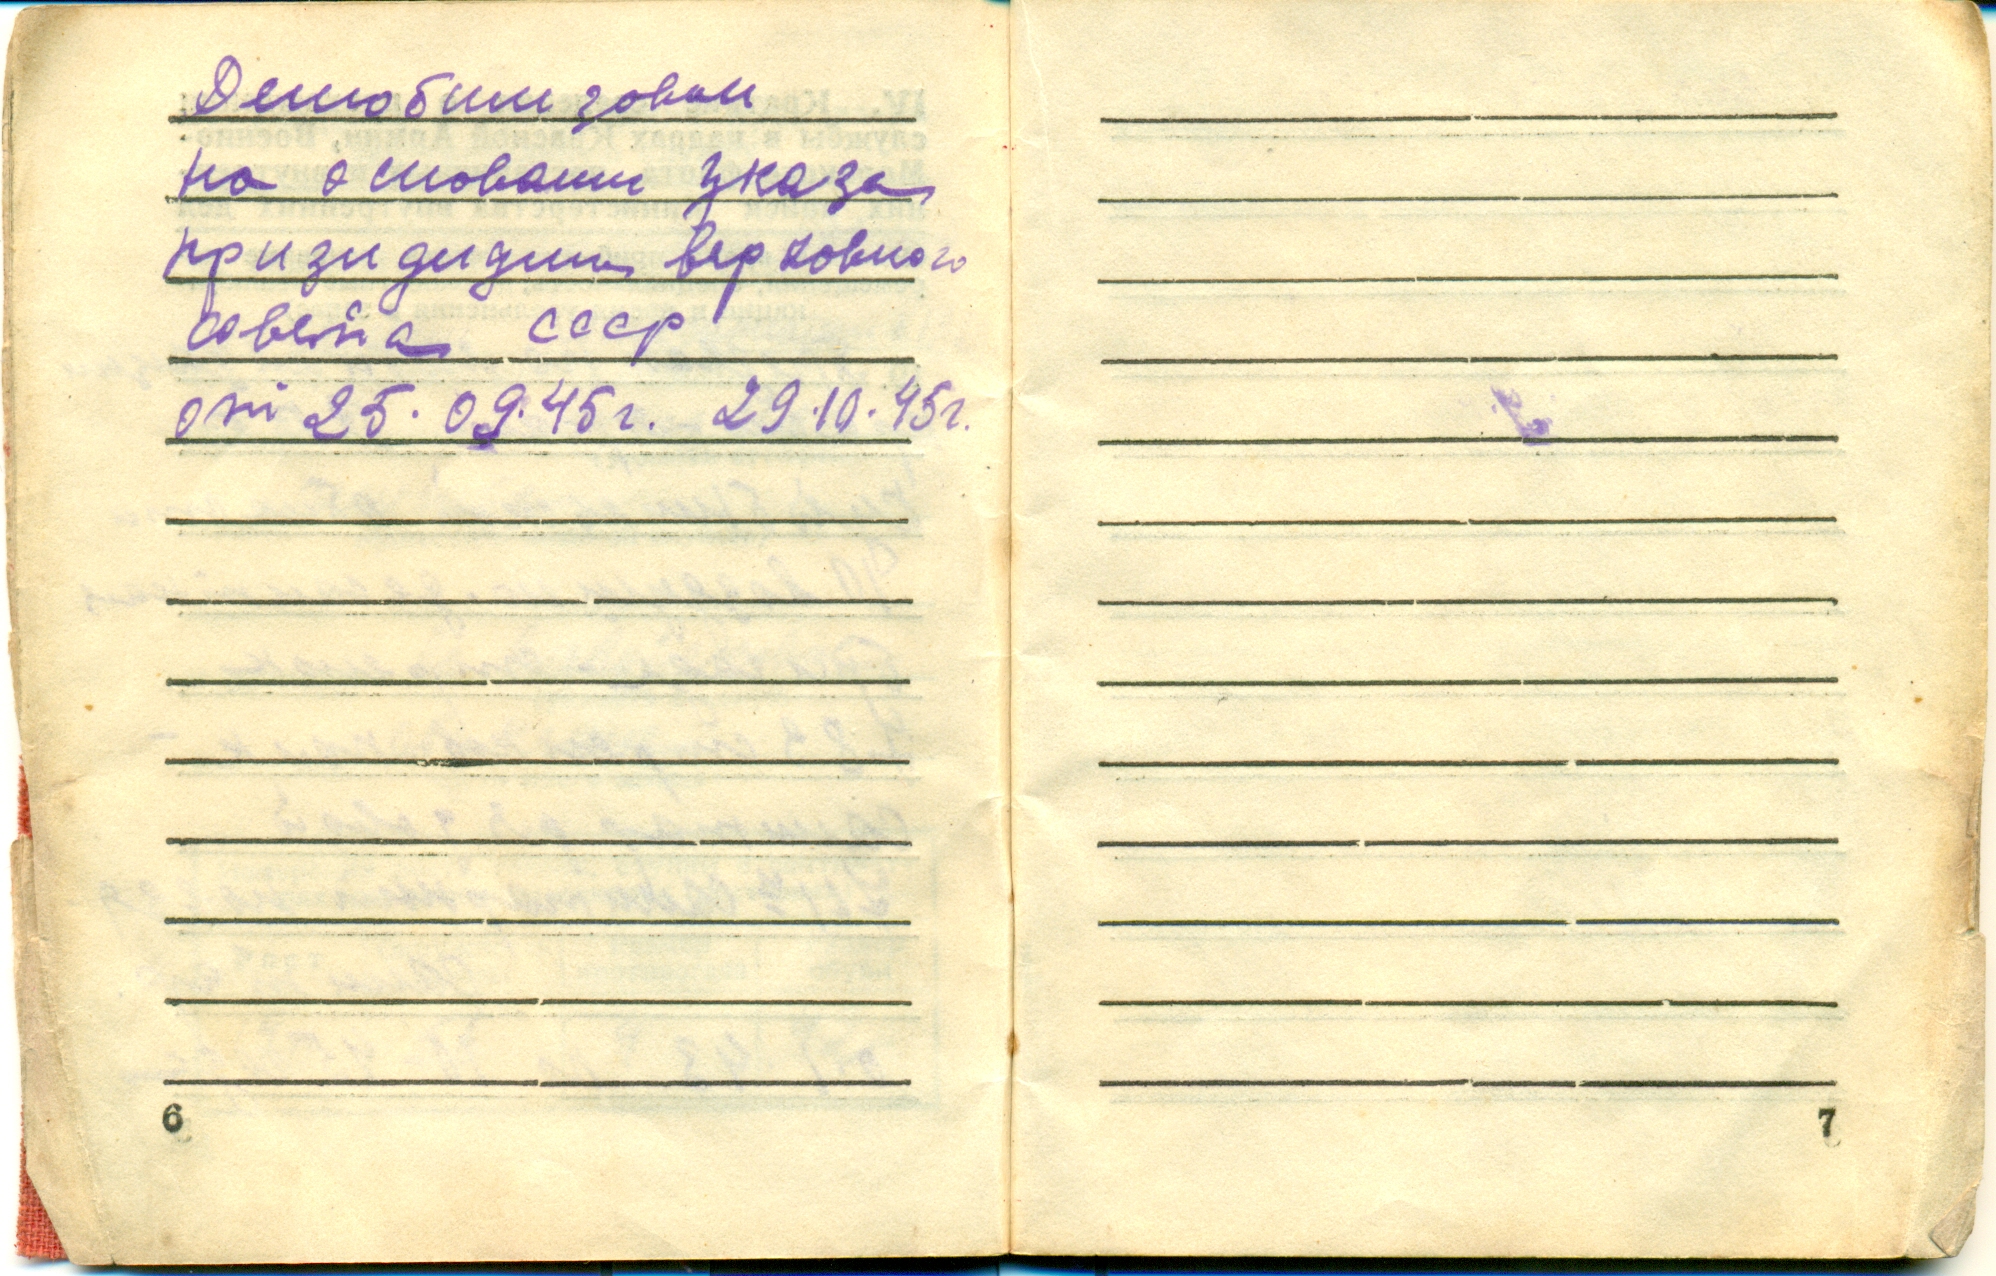 Демобилизован
на основании указа
призидидима верховного
совета СССР
от 25.09.45г. 29.10.45г.
6
7